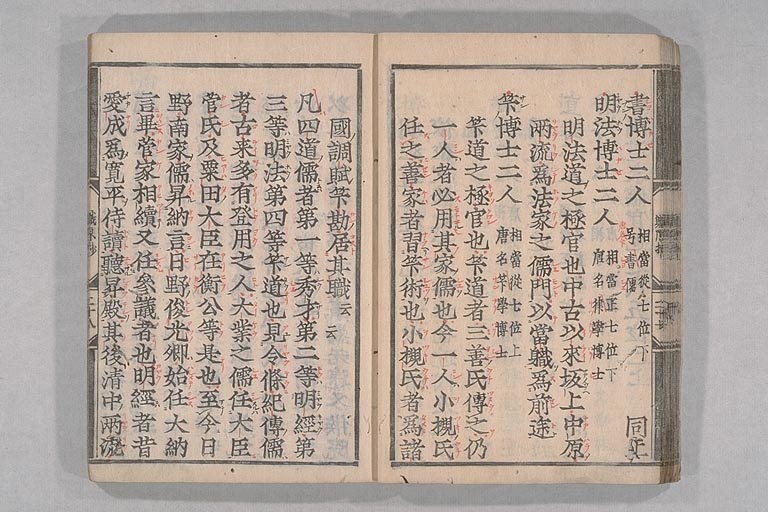 書博士二人 相當從七位下 同上
明法博士二人 相當正七位下 唐名律學博士
明法道之極官也中古以來坂上中原
兩流爲法家之儒門以當職爲前途
筭博士二人 相當從七位上 唐名筭學博士
筭道之極官也筭道者三善氏傳之仍
一人者必用其家儒也今一人小槻氏
任之善家者習筭術也小槻氏者爲諸
國調賦筭勘居其職云云
凡四道儒者第一等秀才第二等明經第
三等明法第四等筭道也見令條紀傳儒
者古来多有登用之人大業之儒任大臣
菅氏及粟田大臣在衡公等是也至今日
野南家儒昇納言日野俊光卿始任大納
言畢菅家相續又任參議者也明經者昔
愛成爲寛平侍讀聽昇殿其後清中兩流
職原抄